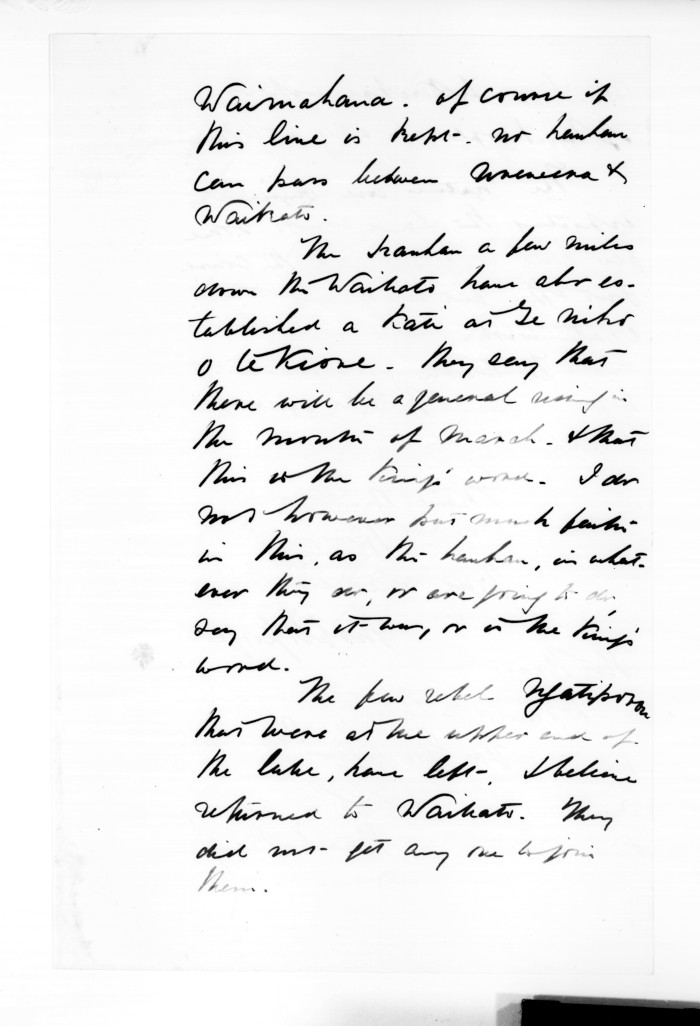 Waimahana. of course if
this line is kept. no hauhau
can pass between Urewera &
Waikato.
The hauhau a few miles
down the Waikato have also es-
tablished a Kati at Te Niho
o te Kiore. They say that
there will be a general rising in
the month of March. & that
this is the King's word. I do
not however put much faith
in this, as the hauhau, in what-
ever they do, or are going to do,
say that it was, or is the King's
word.
The few rebel Ngatiporou
that were at the upper end of
the lake, have left, & I believe
returned to Waikato. They
did not get any one to join
them.